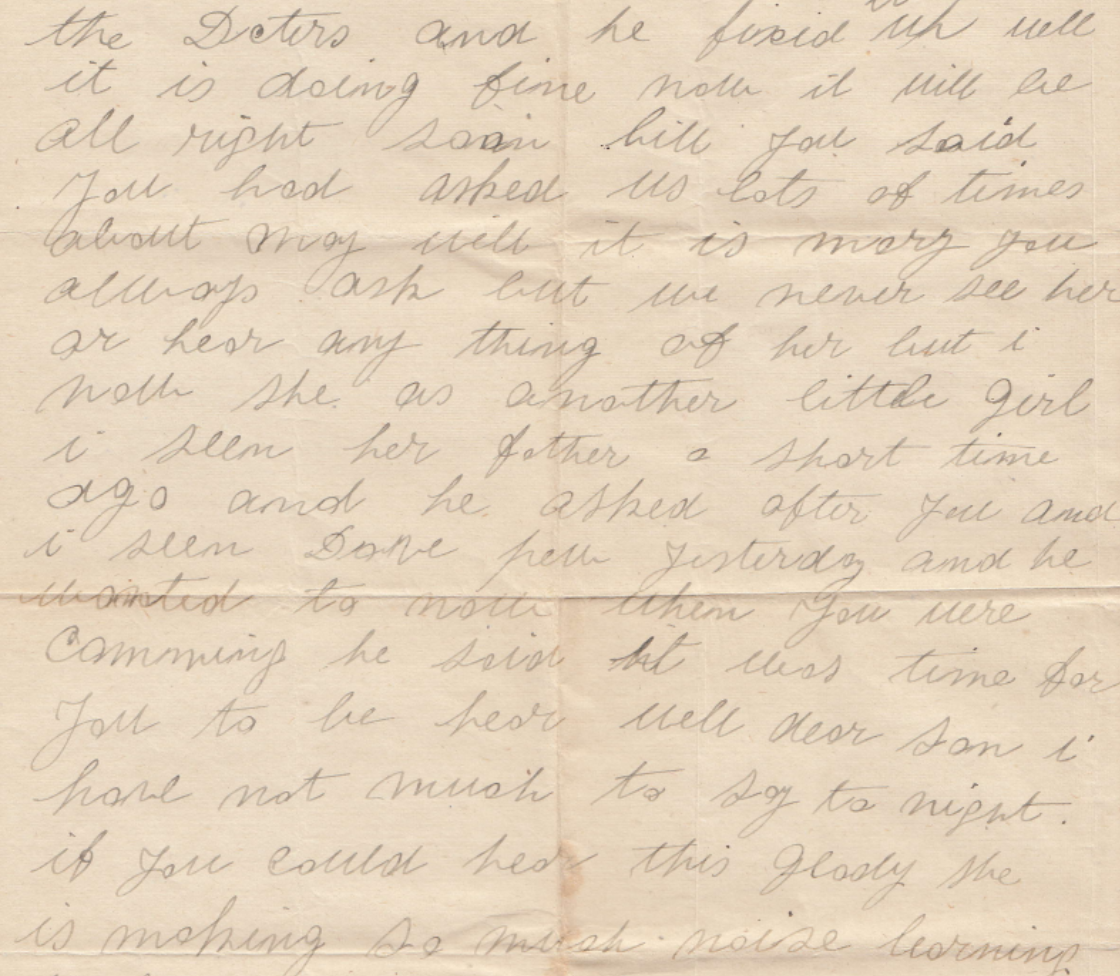 the Doters and he fixid it up well
it is doing fine now it will be
all right soon bill you said
you had asked us lots of times
about may well it is mary you
allways ask but we never see her
or hear any thing of her but i
now she as another little girl
i seen her father a short time
ago and he asked after you and
i seen Dave pew yesterday and he
wanted to now when you were
Comming he said it was time for
you to be hear well dear son i
have not much to say to night.
if you could hear this glady she
is making so much noise learning